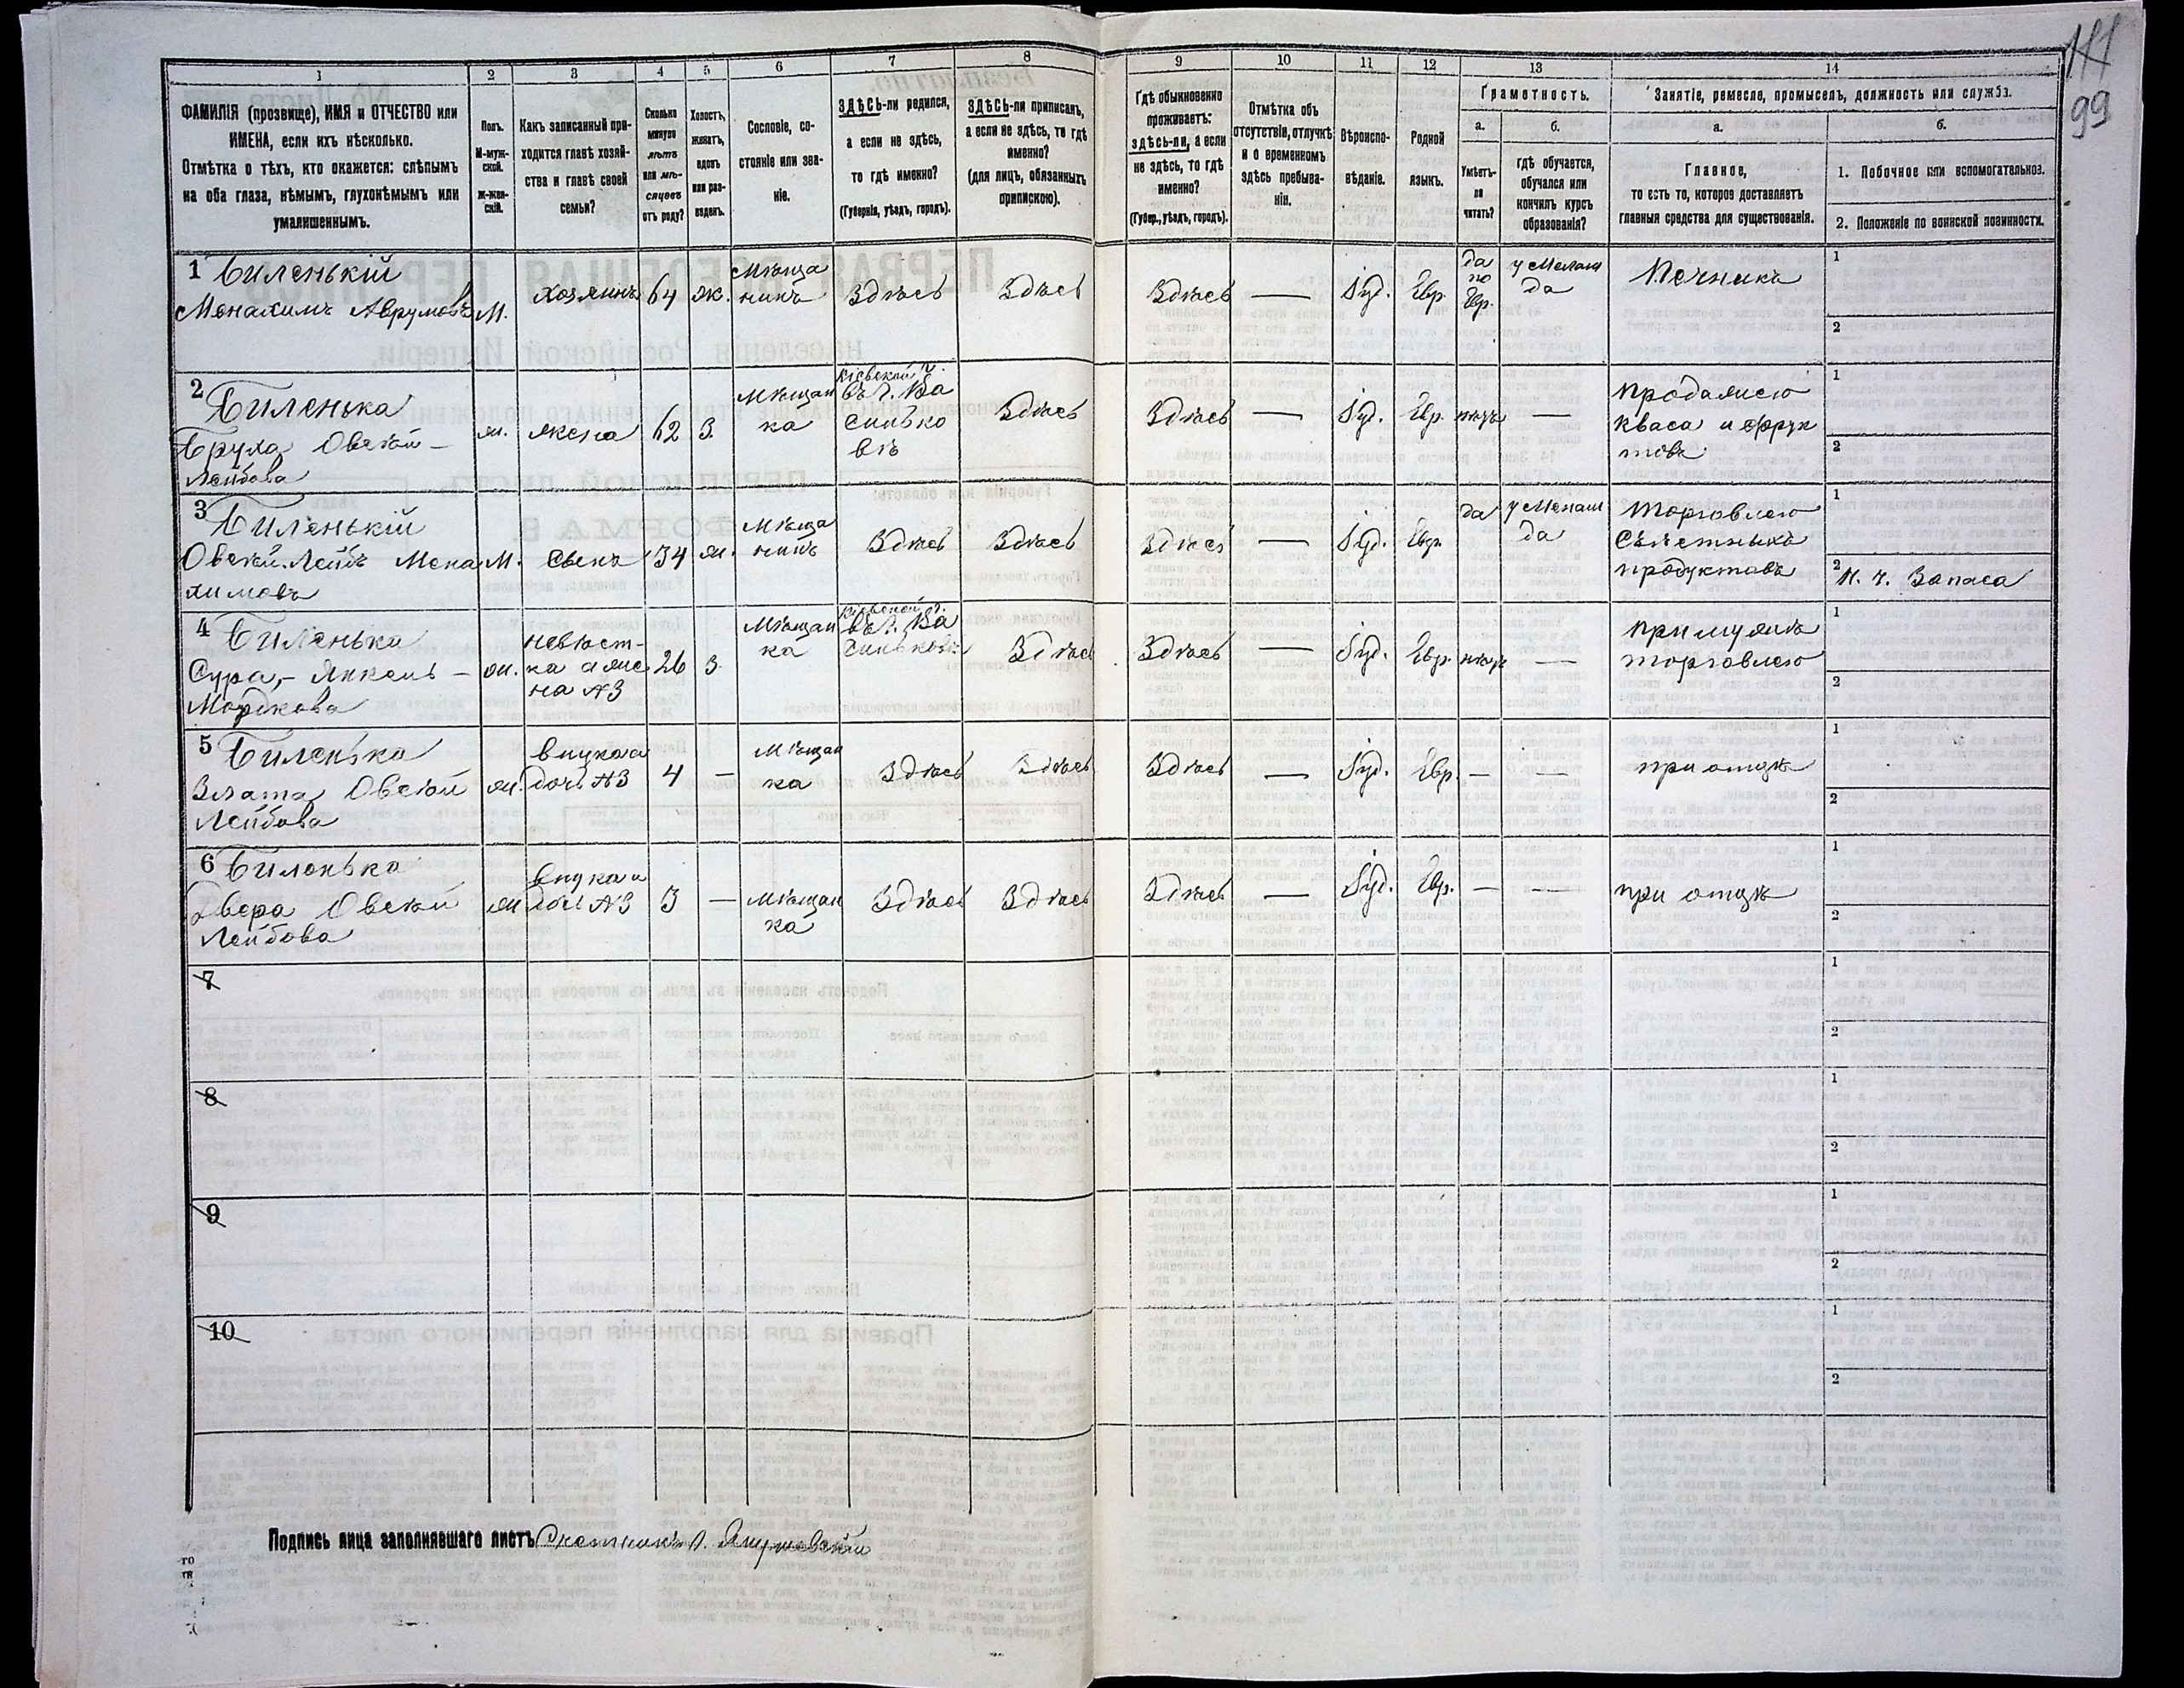 111
99
1 2 3 4 5 6 7 8 9 10 11 12 13 14
ФАМИЛІЯ (прозвище), ИМЯ и ОТЧЕСТВО или
ИМЕНА, если ихъ нѣсколько.
Отмѣтка о тѣхъ, кто окажется: слѣпымъ
на оба глаза, нѣмымъ, глухонѣмымъ или
умалишеннымъ.
Полъ.
М-муж-
ской.
Ж-жен-
скій.
Какъ записанный при-
ходится главѣ хозяй-
ства и главѣ своей
семьи?
Сколько
минуло
лѣтъ
или мѣ-
сяцевъ
отъ роду?
Холостъ,
женатъ,
вдовъ
или раз-
веденъ.
Сословіе, со-
стояніе или зва-
ніе.
ЗДѢСЬ-ли родился,
а если не здѣсь,
то гдѣ именно?
(Губернія, уѣздъ, городъ).
ЗДѢСЬ-ли приписанъ,
а если не здѣсь, то гдѣ
именно?
(для лицъ, обязанныхъ
припискою).
Гдѣ обыкновенно
проживаетъ:
здѣсь-ли, а если
не здѣсь, то гдѣ
именно?
(Губер., уѣздъ, городъ).
Отмѣтка объ
отсутствіи, отлучкѣ
и о временномъ
здѣсь пребыва-
ніи.
Вѣроиспо-
вѣданіе.
Родной
языкъ.
Грамотность.
а.
Умѣетъ-
ли
читать?
б.
гдѣ обучается,
обучался или
кончилъ курсъ
образованія?
Занятіе, ремесло, промыселъ, должность или служба.
а.
Главное,
то есть то, которое доставляетъ
главныя средства для существованія.
б.
1. Побочное или вспомогательное.
2. Положеніе по воинской повинности.
1
Биленькій
Менахимъ Аврумовъ
М.
хозяинъ
64
ж.
мѣща
нинъ
Здѣсь
Здѣсь
Здѣсь
—
Іуд.
Евр.
да
по
Евр.
у Мелам
да
Печникъ
1
2
2
Биленька
Бруха Овсѣй-
Лейбова
ж.
жена
62
З.
мѣщан
ка
Кіевской г.
въ г. Ва
силько
вѣ
Здѣсь
Здѣсь
—
Іуд.
Евр.
нѣтъ
—
продажею
кваса и фрук
товъ
1
2
3
Биленькій
Овсѣй-Лейбъ Мена
химовъ
М.
сынъ
34
ж.
мѣща
нинъ
Здѣсь
Здѣсь
Здѣсь
—
Іуд.
Евр.
да
у Мелам
да
торговлею
Съѣстныхъ
продуктовъ
1
2
Н. ч. Запаса
4
Биленька
Сура,- -
Мордкова
ж.
невѣст-
ка а же
на №3
26
З.
мѣщан
ка
Кіевской г.
въ г. Ва
сильковѣ
Здѣсь
Здѣсь
—
Іуд.
Евр.
нѣтъ
—
при мужѣ
торговлею
1
2
5
Биленька
Злата Овсѣй
Лейбова
ж.
внука а
дочь №3
4
—
мѣщан
ка
Здѣсь
Здѣсь
Здѣсь
—
Іуд.
Евр.
—
—
при отцѣ
1
2
6
Биленька
Двера Овсѣй
Лейбова
ж
внука а
дочь №3
3
—
мѣщан
ка
Здѣсь
Здѣсь
Здѣсь
—
Іуд.
Евр.
—
—
при отцѣ
1
2
7
1
2
8
1
2
9
1
2
10
1
2
Подпись лица заполнявшаго листъ Счетчикъ